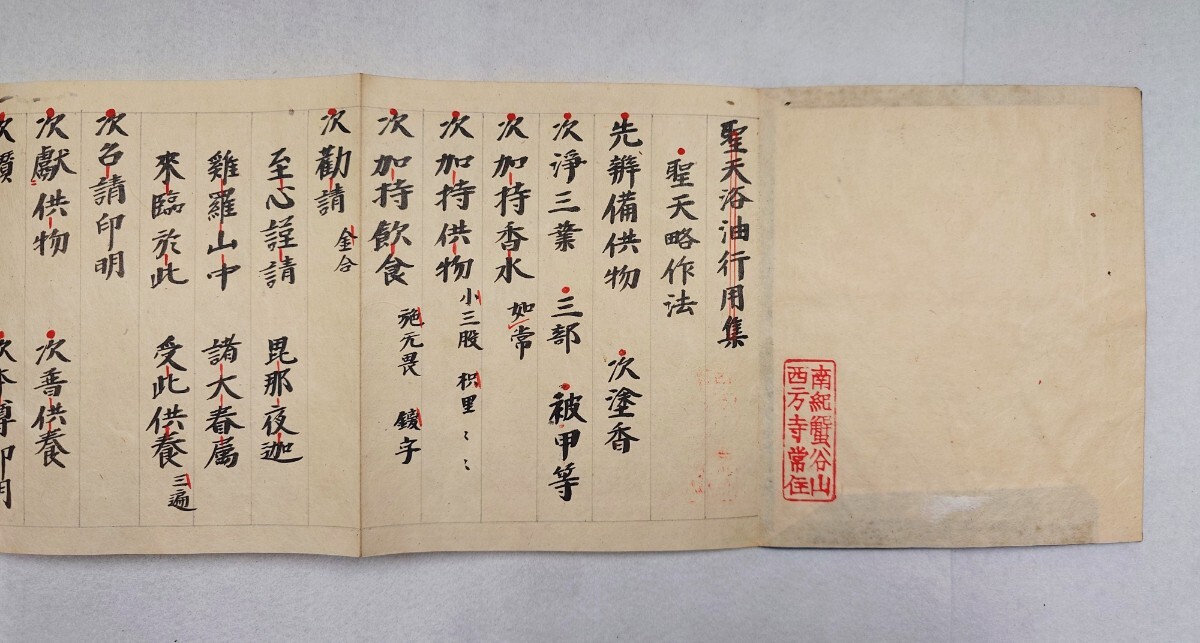 南紀蟹谷山
西方寺常住
聖天浴油行用集
聖天略作法
先辨備供物 次塗香
次淨三業 三部 被甲等
次加持香水 如常
次加持供物 小三股 枳里〻〻
次加持飲食 施无畏 鑁字
次勸請 金合
至心謹請 毘那夜迦
雞羅山中 諸大眷屬
來臨於此 受此供養 三遍
次召請印明
次獻供物 次普供養
次讚 次本尊印明